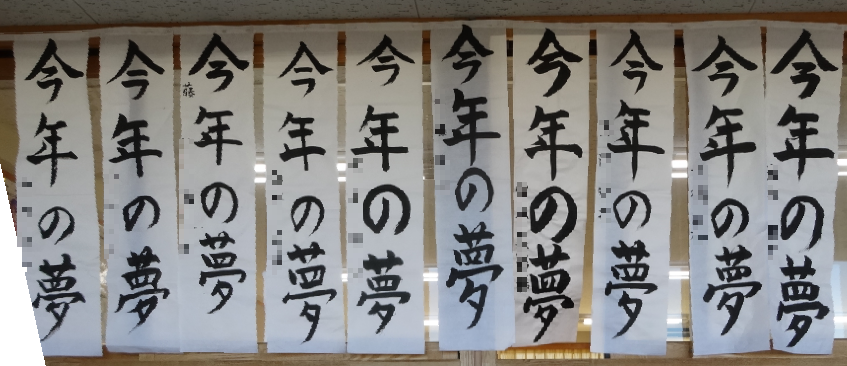 今年の夢
今年の夢
今年の夢
今年の夢
今年の夢
今年の夢
今年の夢
今年の夢
藤
今年の夢
今年の夢